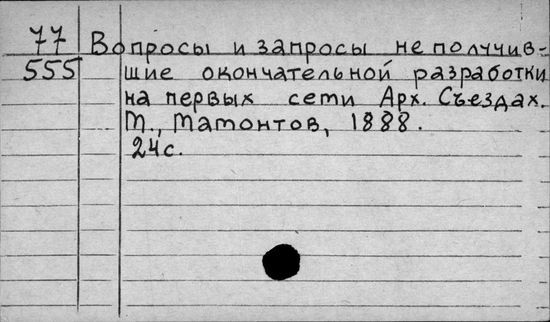 77 Вопросы и запросы не получив-
555 шие окончательной разработки
на первых сети Арх. Съездах.
М., Мамонтов, 1888.
24с.